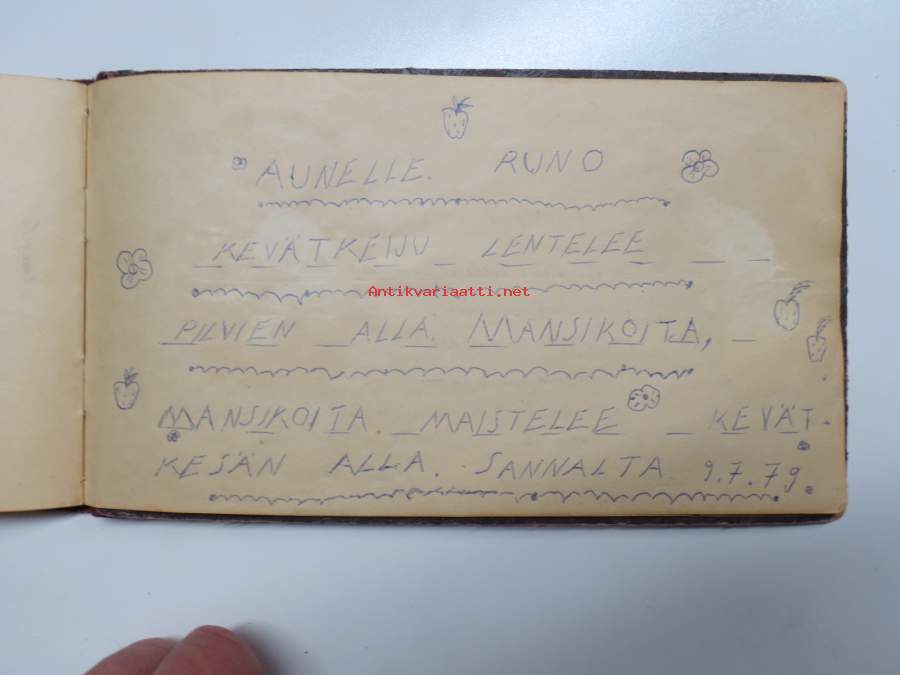 AUNELLE. RUNO
KEVÄTKEIJU LENTELEE
Antikvariaatti.net
PILVIEN ALLA. MANSIKOITA,
MANSIKOITA. MAISTELEE KEVÄT-
KESÄN ALLA. SANNALTA 9.7.79.